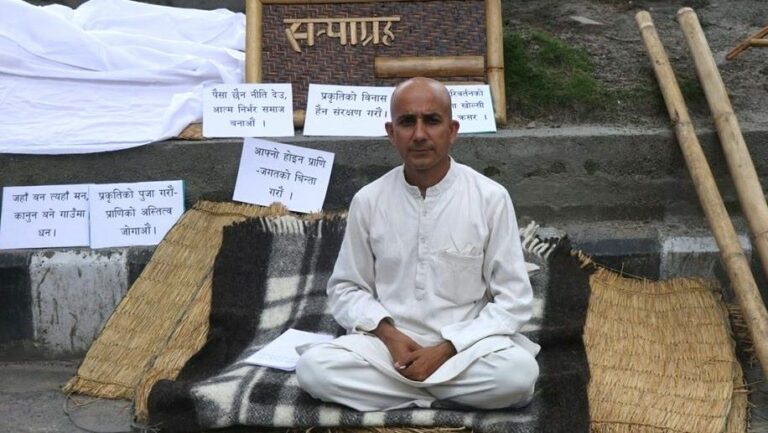 सत्याग्रह
पैसा छैन नीति देउ,
आत्म निर्भर समाज
बनाऔं ।
प्रकृतिको बिनास
हैन संरक्षण गरौं ।
आफ्नो होइन प्राणि
-जगतको चिन्ता
गरौं ।
जहाँ बन त्यहाँ मन,
कानुन बने गाउँमा
धन ।
प्रकृतिको पुजा गरौं-
प्राणिको अस्तित्व
जोगाऔं ।